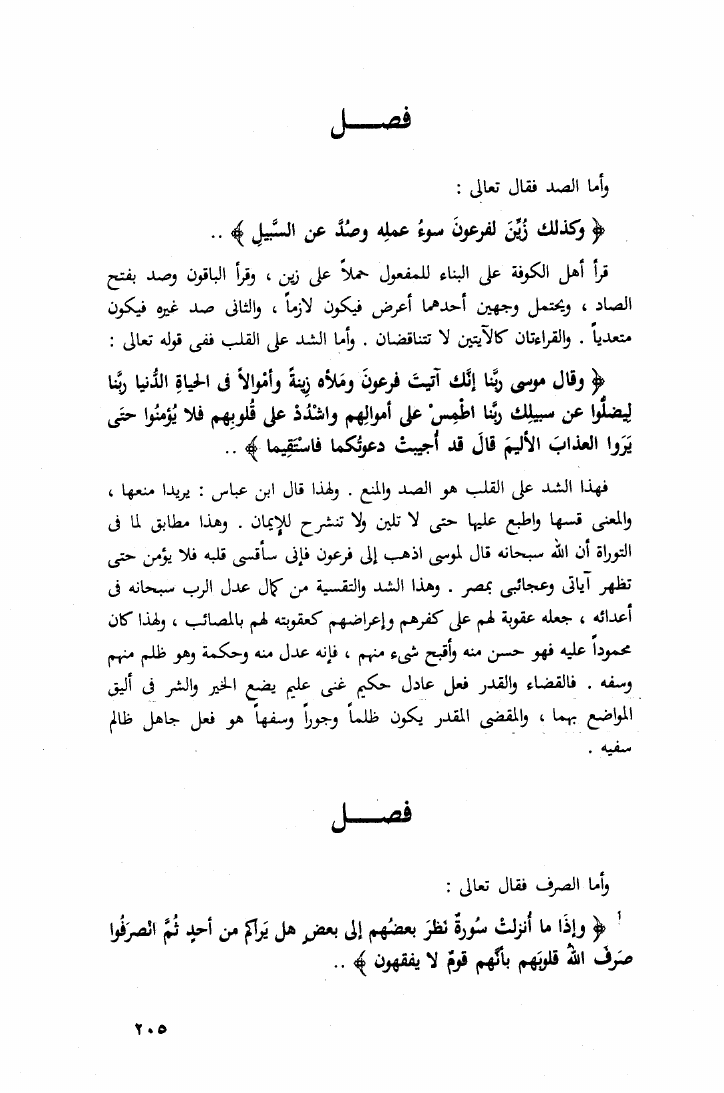 فصـــــل
وأما الصد فقال تعالى :
﴿ وكذلك زُيِّنَ لفرعونَ سوءُ عمله وصُدَّ عن السَّبيلِ ﴾ ..
قرأ أهل الكوفة على البناء للمفعول حملاً على زين ، وقرأ الباقون وصد بفتح
الصاد ، ويحتمل وجهين أحدهما أعرض فيكون لازماً ، والثانى صد غيره فيكون
متعدياً . والقراءتان كالآيتين لا تتناقضان . وأما الشد على القلب ففى قوله تعالى :
﴿ وقال موسى ربَّنا إنَّك آتيتَ فرعونَ ومَلأه زِينةً وأمْوالاً فى الحياةِ الدُّنيا ربَّنا
لِيضلُّوا عن سبيلِك ربَّنا اطْمِسْ على أموالِهم واشْدُدْ على قُلوبِهم فلا يُؤمنُوا حتَّى
يَرَوا العذابَ الأليمَ قالَ قد أُجيبتْ دعوتُكما فاسْتَقِيما ﴾ ..
فهذا الشد على القلب هو الصد والمنع . ولهذا قال ابن عباس : يريدا منعها ،
والمعنى قسها واطبع عليها حتى لا تلين ولا تنشرح للإيمان . وهذا مطابق لما فى
التوراة أن الله سبحانه قال لموسى اذهب إلى فرعون فإنى سأقسى قلبه فلا يؤمن حتى
تظهر آياتى وعجائبى بمصر . وهذا الشد والتقسية من كمال عدل الرب سبحانه فى
أعدائه ، جعله عقوبة لهم على كفرهم وإعراضهم كعقوبته لهم بالمصائب ، ولهذا كان
محموداً عليه فهو حسن منه وأقبح شىء منهم ، فإنه عدل منه وحكمة وهو ظلم منهم
وسفه . فالقضاء والقدر فعل عادل حكيم غنى عليم يضع الخير والشر فى أليق
المواضع بهما ، والمقضى المقدر يكون ظلماً وجوراً وسفهاً هو فعل جاهل ظالم
سفيه .
فصـــــل
وأما الصرف فقال تعالى :
﴿ وإذَا ما أُنزلتْ سُورةٌ نَظرَ بعضُهم إلى بعضٍ هل يَراكم من أحدٍ ثُمَّ انْصرَفُوا
صرَفَ اللهُ قلوبَهم بأنَّهم قومٌ لا يفقهون ﴾ ..
٢٠٥